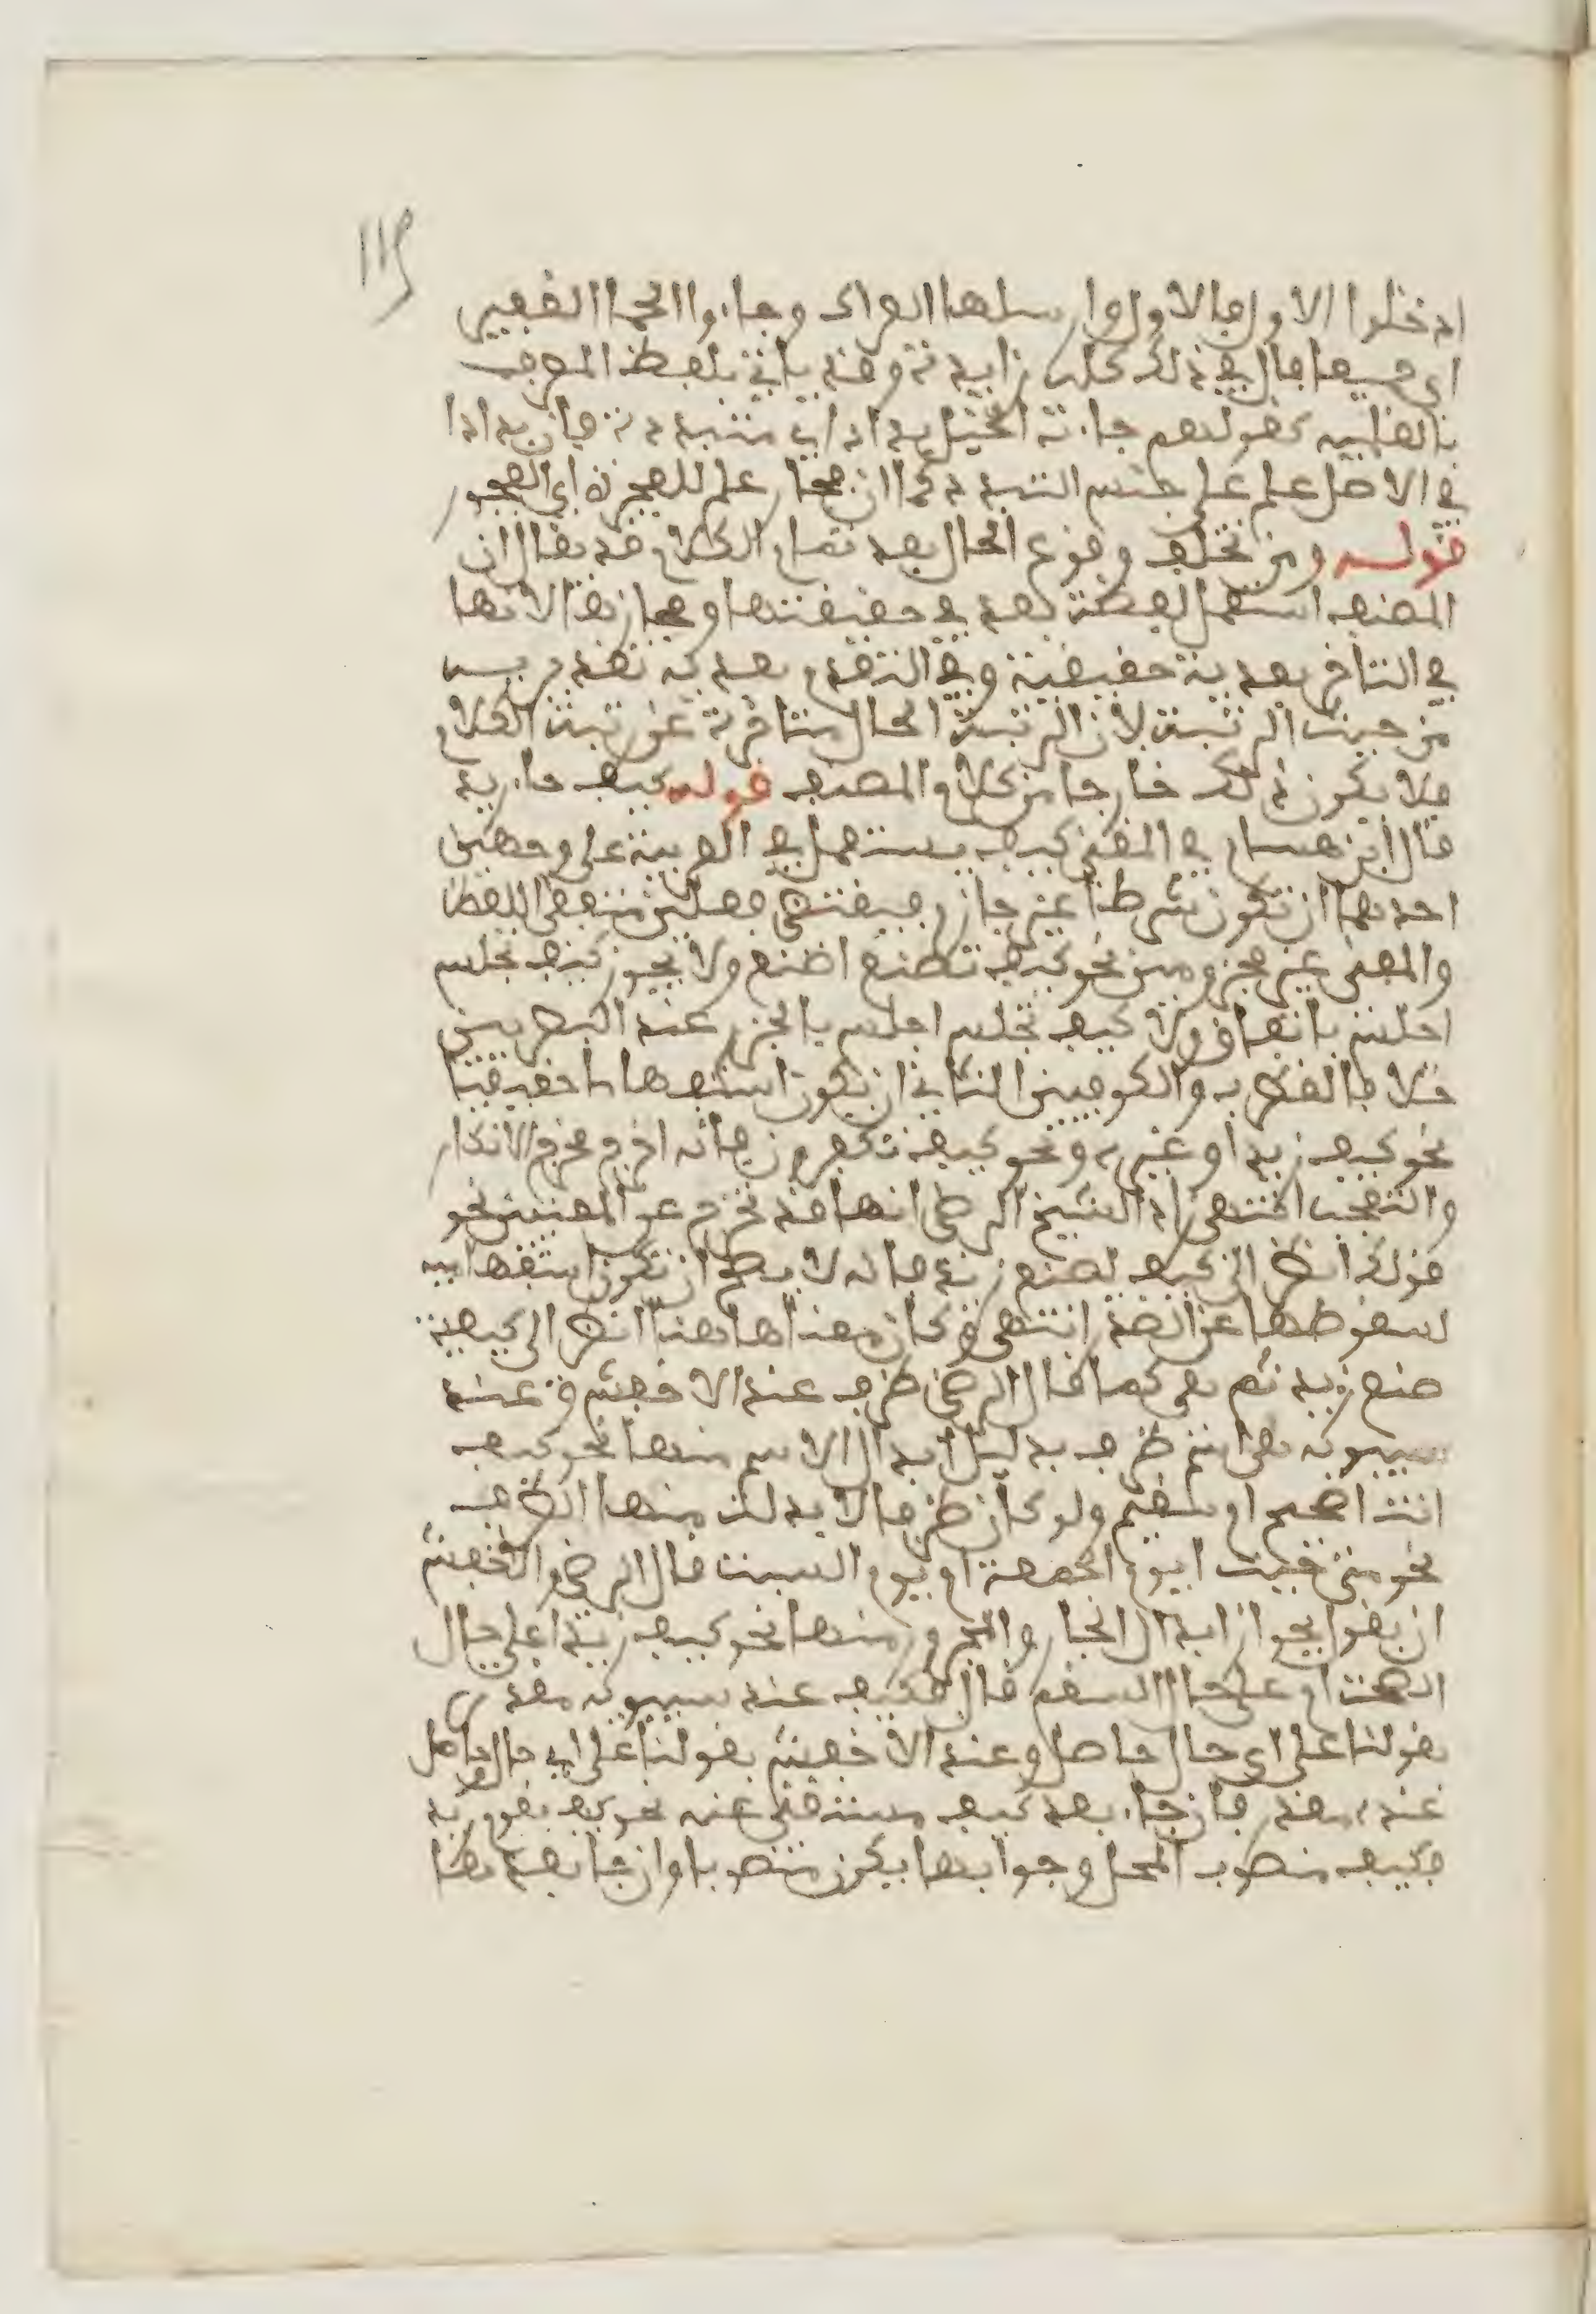 119
ادخلوا الاول فالاول وارسلها العراك وجاءوا الجما الغفير
اي جميعا فال في ذلك كله زايدة وقد ياتي بلفظ المعرف
بالعلمية كقولهم جاءت الخيل بداد اي متبددة فان بداد
في الاصل علم على جنس التبدد كما ان فجار علم للفجرة اي الفجور
قوله ومن تخلف وقوع الحال بعد تمام الكلام قد يقال ان
المصنف استعمل لفظة بعد في حقيقتها ومجازها لانها
في التاخر بعدية حقيقية وفي التقدم بعدية تقديرية
من حيث الرتبة لان الرتبة الحال متاخرة عن رتبة الكلام
فلا يكون ذلك خارجا من كلام المصنف قوله كيف جا زيد
قال ابن هشام في المغني كيف يستعمل في العربية على وجهين
احدهما ان تكون شرطا غير جازم فيقتضي فعلين متفقي اللفظ
والمعنى غير مجزومين نحو كيف تصنع اصنع ولا يجوز كيف تجلس
اجلس باتفاق ولا كيف تجلس اجلس بالجزم عند البصريين
خلافا لقطرب والكوفيين الثاني ان تكون استفهاما حقيقيا
نحو كيف زيد او غيره ونحو كيف تكفرون فانه اخرج مخرج الانكار
والتعجب انتهى زاد الشيخ الرضي انها قد تخرج عن المعنيين نحو
قولك انظر الى كيف يصنع زيد فانه لا يصح ان تكون استفهامية
لسقوطها عن الصدر انتهى وكان معناها هنا انظر الى كيفية
صنع زيد ثم هي كما قال الرضي ظرف عند الاخفش وعند
سيبويه هي اسم ظرف بدليل ابدال الاسم منها نحو كيف
انت اصحيح ام سقيم ولو كان ظرفا لابدلت منها الظرف
نحو متى جيت ايوم الجمعة ام يوم السبت قال الرضي والاخفش
ان يقول يجوز ابدال الجار والمجرور منها نحو كيف زيد اعلى حال
الصحة ام على حال السقم قال فكيف عند سيبويه مقدر
بقولنا على اي حال حاصل وعند الاخفش بقولنا على اي حال حاصل
عنده مقدر فان جاء بعد كيف مستغنى عنه نحو كيف يقوم زيد
فكيف منصوب المحل وجوابها يكون منصوبا وان جا بعدها